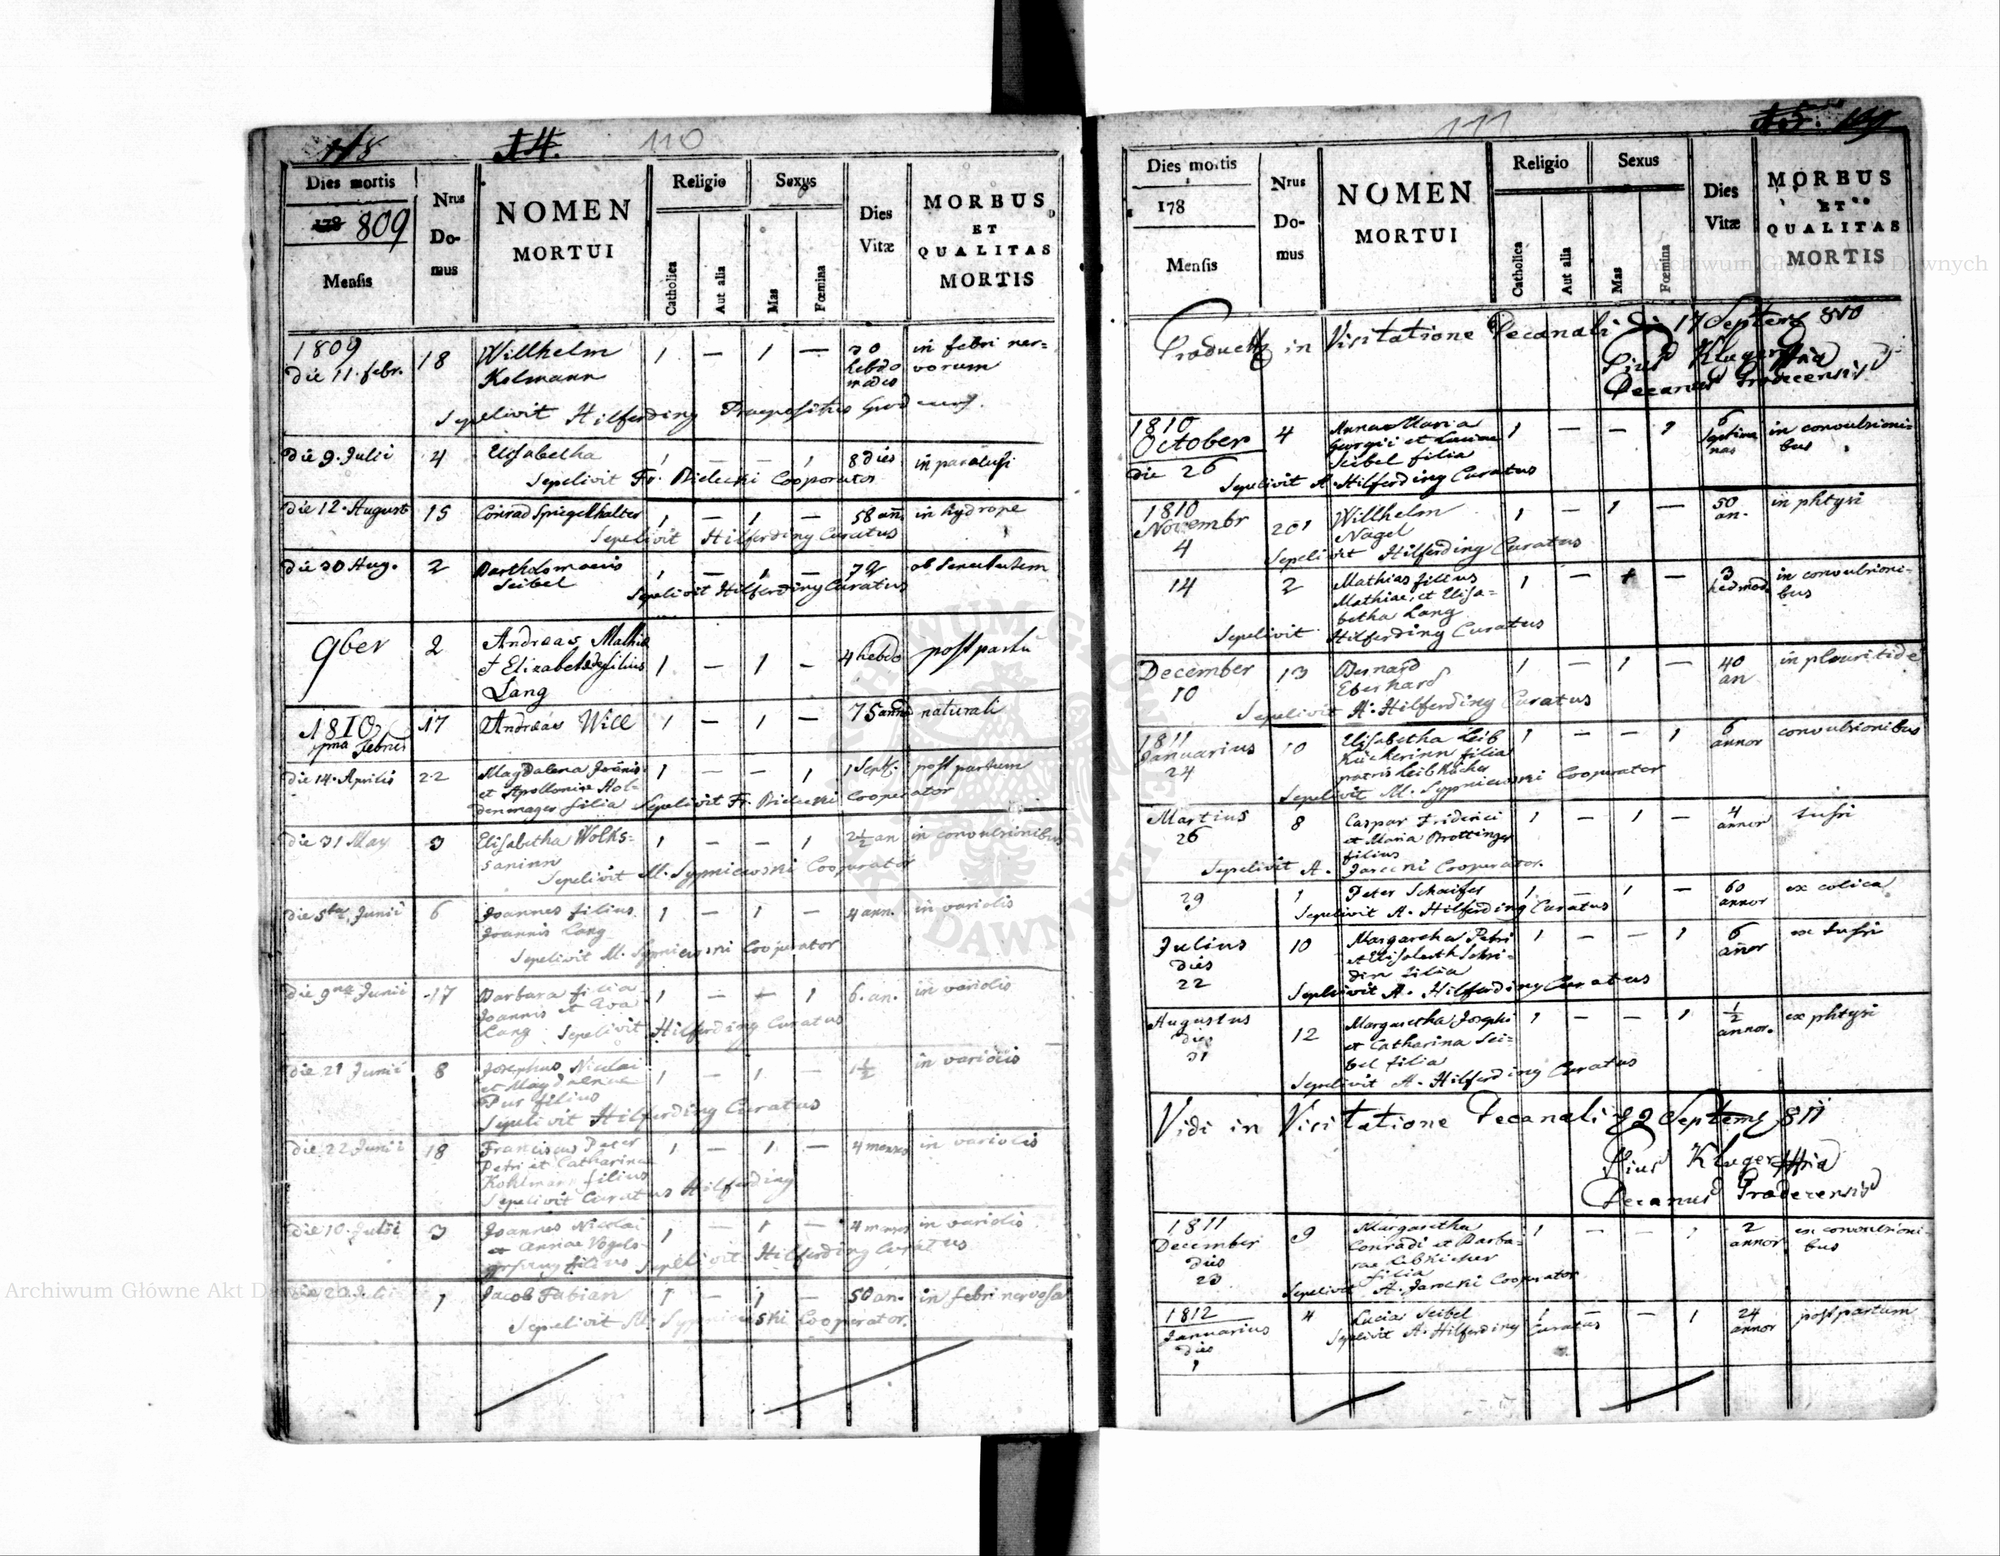 118 14. 110
Dies mortis
178 809
Mensis
Nrus
Do-
mus
NOMEN
MORTUI
Religio
Catholica
Aut alia
Sexus
Mas
Fœmina
Dies
Vitæ
MORBUS
ET
QUALITAS
MORTIS
1809
die 11. febr. 18 Willhelm Kolmann 1 — 1 — 30 hebdo mades in febri ner=
vorum
Sepelivit Hilferding Praepositus
die 9. Julii 4 Elisabetha 1 — — 1 8 dies in paralysi
Sepelivit Fr. Bielecki Cooperator
die 12. August 15 Conrad Spiegelhalter 1 — 1 — 58 an. in hydrope
Sepelivit Hilferding Curatus
die 30 Aug. 2 Bartholomaeus
Seibel 1 — 1 — 72 ob senectutem
Sepelivit Hilferding Curatus
9ber 2 Andreas Mathia
et Elizabethae filius
Lang 1 — 1 — 4 hebdo post partu
1810
1ma febrii 17 Andreas Will 1 — 1 — 75 anno naturali
die 14. Aprilis 22 Magdalena Joanis
et Apolloniae Hol-
denmager filia 1 — — 1 1 Sept. post partum
Sepelivit Fr. Bielecki Cooperator
die 31 May 3 Elisabetha Wolks-
saninn 1 — — 1 2½ an in convulsionibus
Sepelivit M. Sypniewski Cooperator
die 5ta Junii 6 Joannes filius
Joannis Lang 1 — 1 — 4 ann. in variolis
Sepelivit M. Sypniewski Cooperator
die 9na Junii 17 Barbara filia
Joannis et Eva
Lang 1 — + 1 6. an. in variolis
Sepelivit Hilferding Curatus
die 21 Junii 8 Josephus Nicolai
et Magdalenae
Pur filius 1 — 1 — 1½ in variolis
Sepelivit Hilferding Curatus
die 22 Junii 18 Franciscus Peter
Petri et Catharinae
Kohlmann filius 1 — 1 — 4 menses in variolis
Sepelivit Curatus Hilferding
die 10. Julii 3 Joannes Nicolai
et Annae Vogels-
filius 1 — 1 — 4 menses in variolis
Sepelivit Hilferding Curatus
1 Jacob Fabian 1 — 1 — 50 an. in febri nervosa
Sepelivit M. Sypniewski Cooperator.
111
Dies mortis
178
Mensis
Nrus
Do-
mus
NOMEN
MORTUI
Religio
Catholica
Aut alia
Sexus
Mas
Fœmina
Dies
Vitæ
MORBUS
ET
QUALITAS
MORTIS
in Visitatione Decanali di 17 Septemb 810
Pius Kluger
Decanus Grodecensis
1810
October
die 26 4 Anna Maria
Georgii et Luciae
Seibel filia 1 — — 1 6 septima nas in convulsioni
bus
Sepelivit A. Hilferding Curatus
1810
Novembr
4 201 Willhelm
Nagel 1 — 1 — 50 an. in phtysi
Sepelivit Hilferding Curatus
14 2 Mathias filius
Mathiae, et Elisa-
betha Lang 1 — + — 3 hedmod. in convulsioni-
bus
Sepelivit Hilferding Curatus
December
10 13 Bernard
Eberhard 1 — 1 — 40 an in pleuritide
Sepelivit A. Hilferding Curatus
1811
Januarius
24 10 Elisabetha Leib
Kücherinn filia
patris Leib Kücher 1 — — 1 6 annor convulsionibus
Sepelivit M. Sypniewski Cooperator
Martius
26 8 Caspar Friderici
et Maria Brottinger
filius 1 — 1 — 4 annor tussi
Sepelivit A. Jarecki Cooperator.
29 1 Peter Schaifer 1 — 1 — 60 annor ex colica
Sepelivit A. Hilferding Curatus
Julius
dies
22 10 Margaretha Petri
et Elisabeth Schri-
din filia 1 — — 1 6 annor ex tussi
Sepelivit A. Hilferding Curatus
Augustus
dies
31 12 Margaretha Josephi
et Catharina Sei-
bel filia 1 — — 1 ½ annor. ex phtysi
Sepelivit A. Hilferding Curatus
Vidi in Visitatione Decanali 22 Septemb 811
Pius Kluger
Decanus Grodecensis
1811
December
dies
23 9 Margaretha
Conradi et Barba-
rae Leibkücher
filia 1 — — 1 2 annor ex convulsioni
bus
Sepelivit A. Jarocki Cooperator
1812
Januarius
dies
1 4 Lucia Seibel 1 — — 1 24 annor post partum
Sepelivit A. Hilferding Curatus
Archiwum Główne Akt Dawnych
Archiwum Główne Akt Dawnych
ARCHIWUM GŁÓWNE AKT DAWNYCH